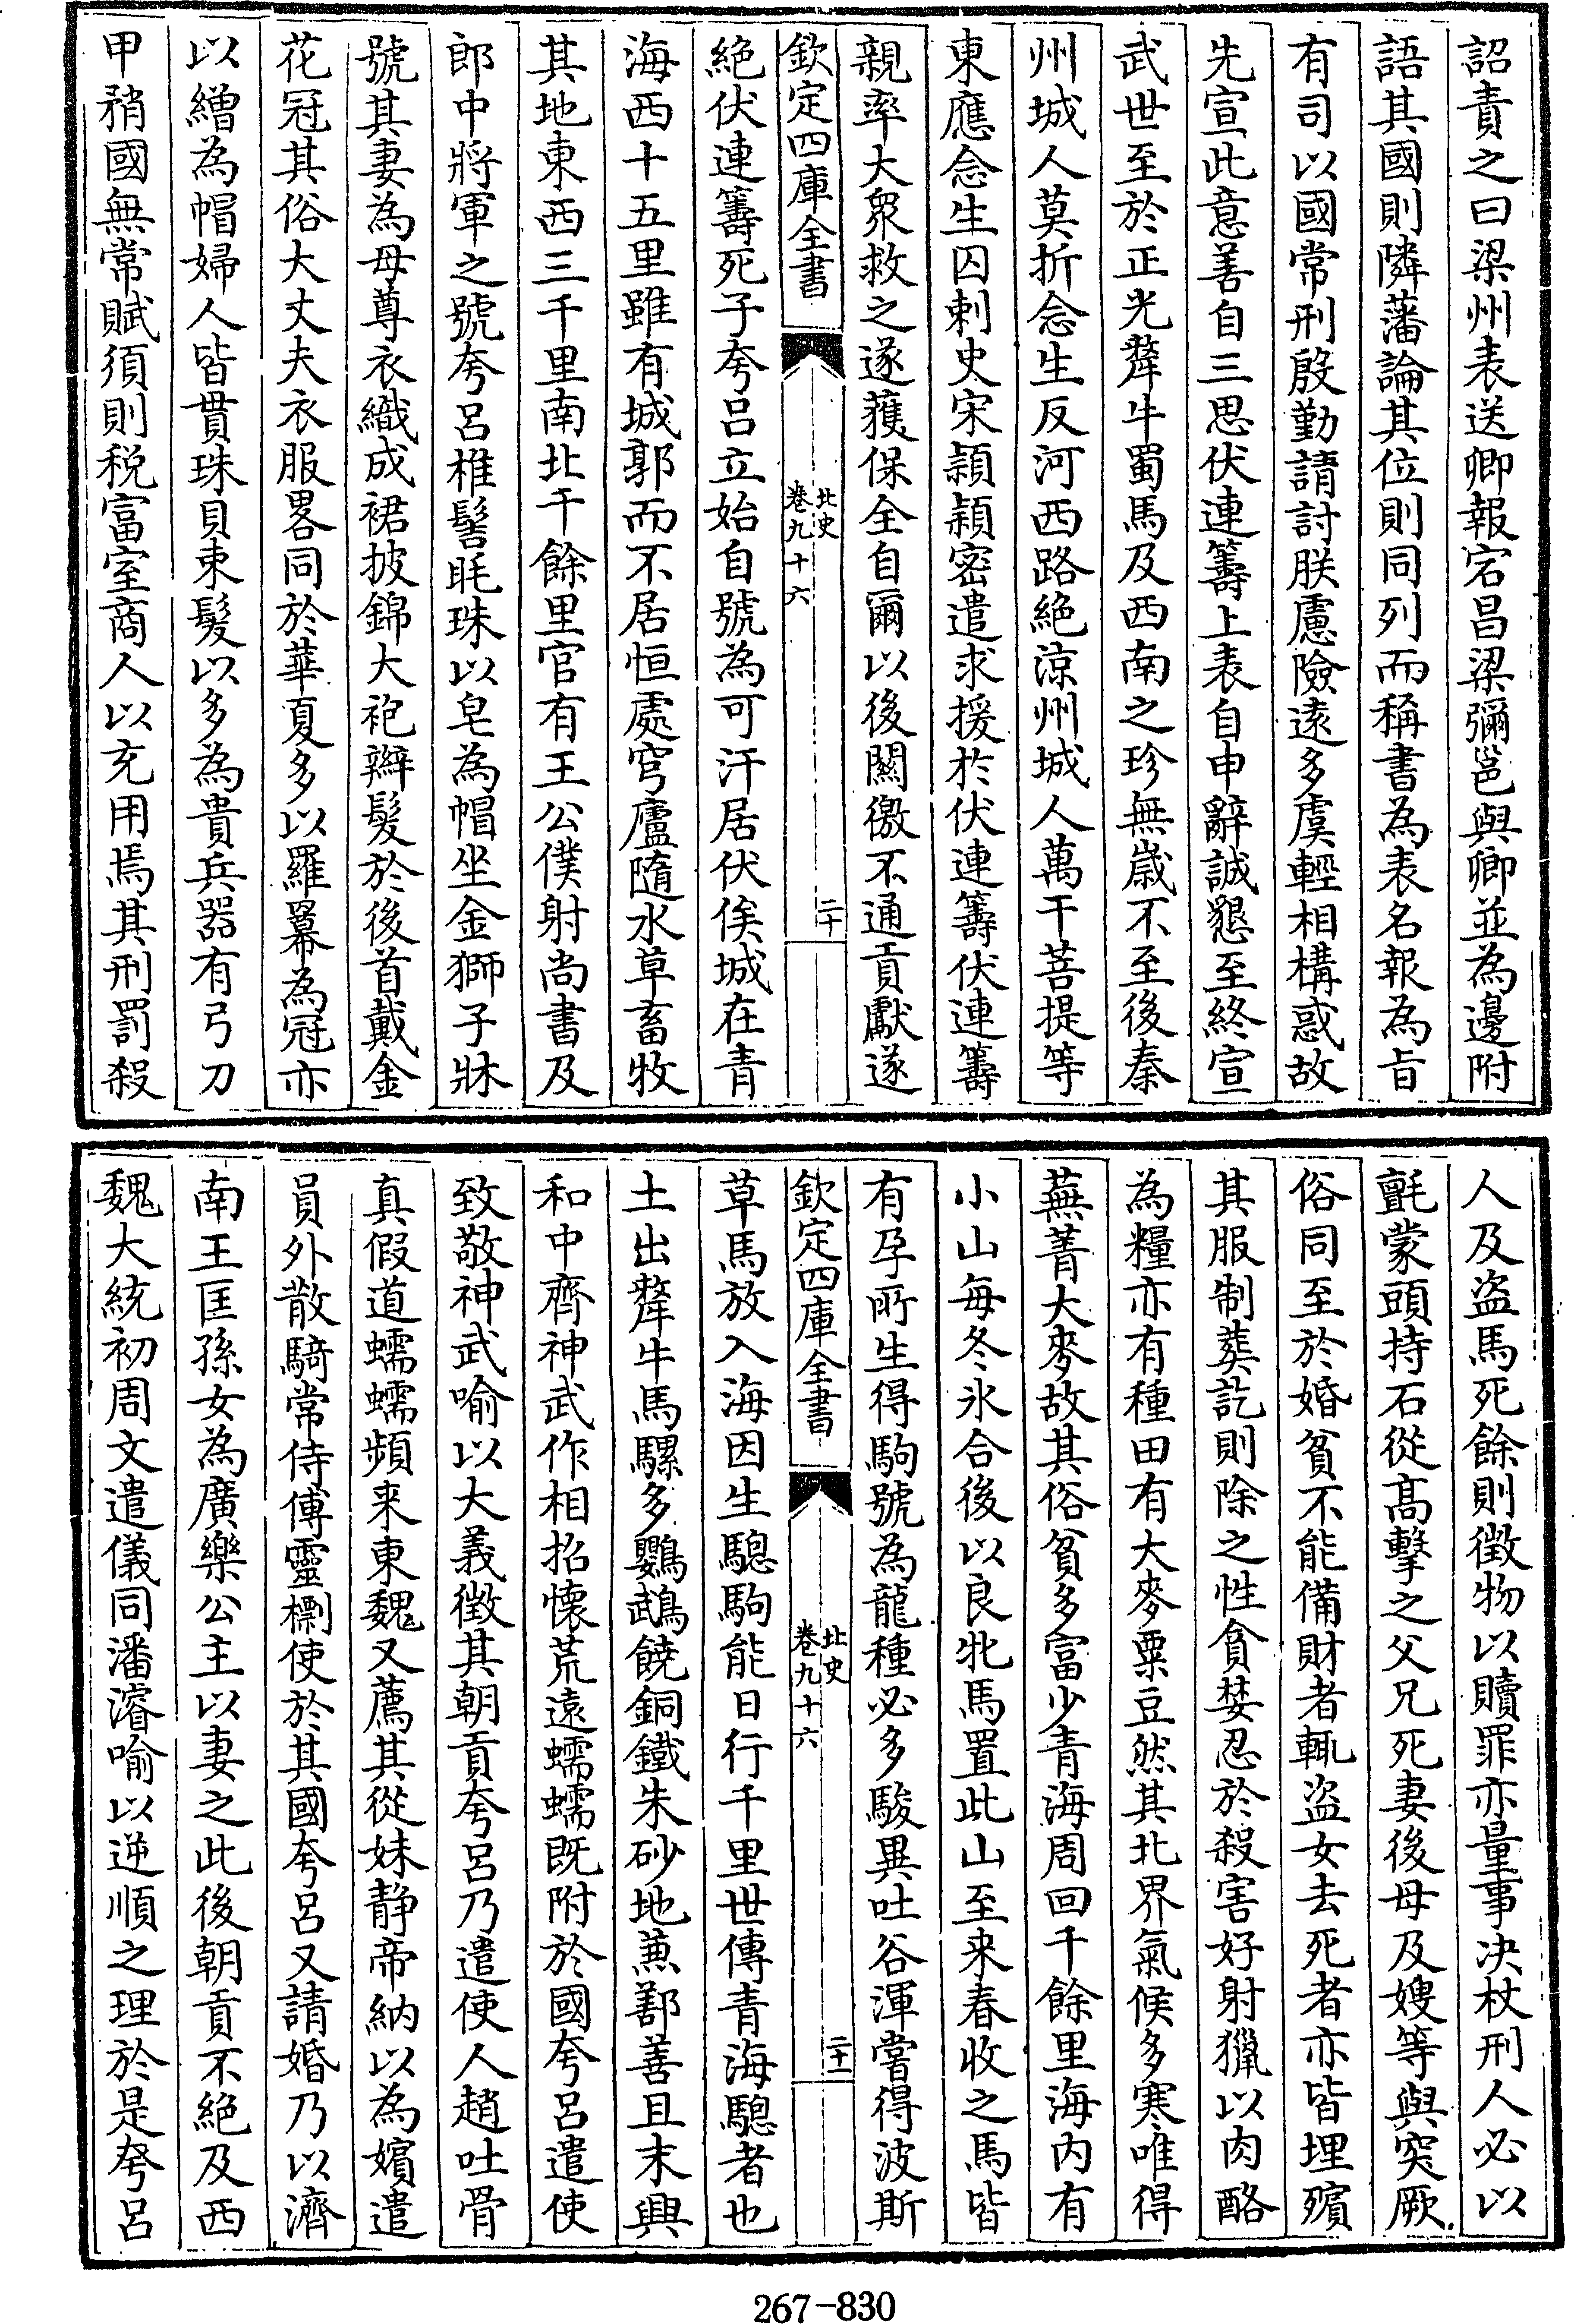 詔責之曰梁州表送卿報宕昌梁彌邕與卿並為邊附
語其國則隣藩論其位則同列而稱書為表名報為旨
有司以國常刑殷勤請討朕慮險遠多虞輕相構惑故
先宣此意善自三思伏連籌上表自申辭誠懇至終宣
武世至於正光犛牛蜀馬及西南之珍無歲不至後秦
州城人莫折念生反河西路絕涼州城人萬于菩提等
東應念生囚刺史宋穎穎密遣求援於伏連籌伏連籌
親率大衆救之遂獲保全自爾以後關徼不通貢獻遂
欽定四庫全書
北史
卷九十六
二十
絕伏連籌死子夸呂立始自號為可汗居伏俟城在青
海西十五里雖有城郭而不居恒處穹廬隨水草畜牧
其地東西三千里南北千餘里官有王公僕射尚書及
郎中將軍之號夸呂椎髻毦珠以皂為帽坐金獅子牀
號其妻為母尊衣織成裙披錦大袍辮髮於後首戴金
花冠其俗大丈夫衣服畧同於華夏多以羅羃為冠亦
以繒為帽婦人皆貫珠貝束髮以多為貴兵器有弓刀
甲矟國無常賦須則稅富室商人以充用焉其刑罰殺
人及盜馬死餘則徵物以贖罪亦量事決杖刑人必以
氈蒙頭持石從髙擊之父兄死妻後母及嫂等與突厥
俗同至於婚貧不能備財者輒盜女去死者亦皆埋殯
其服制葬訖則除之性貪婪忍於殺害好射獵以肉酪
為糧亦有種田有大麥粟豆然其北界氣候多寒唯得
蕪菁大麥故其俗貧多富少青海周回千餘里海內有
小山每冬氷合後以良牝馬置此山至来春收之馬皆
有孕所生得駒號為龍種必多駿異吐谷渾嘗得波斯
欽定四庫全書
北史
卷九十六
二十一
草馬放入海因生驄駒能日行千里世傳青海驄者也
土出犛牛馬騾多鸚鵡饒銅鐵朱砂地兼鄯善且末興
和中齊神武作相招懷荒遠蠕蠕既附於國夸呂遣使
致敬神武喻以大義徵其朝貢夸呂乃遣使人趙吐骨
真假道蠕蠕頻来東魏又薦其從妹静帝納以為嬪遣
員外散騎常侍傅靈檦使於其國夸呂又請婚乃以濟
南王匡孫女為廣樂公主以妻之此後朝貢不絕及西
魏大統初周文遣儀同潘濬喻以逆順之理於是夸呂
267-830